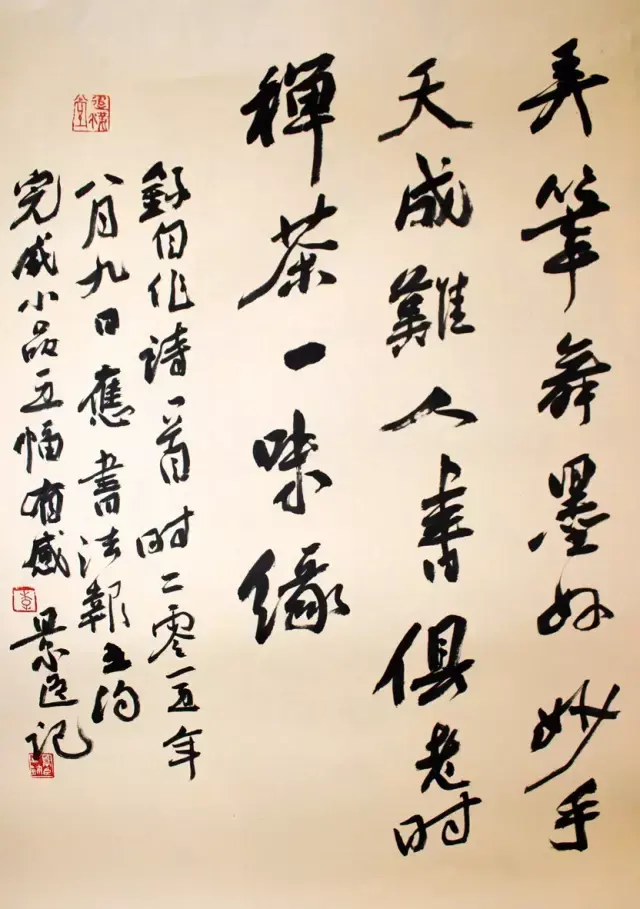 弄筆舞墨好妙手
天成難人書俱老时
禪茶一味緣
錄自作詩一首时二零一五年
八月九日應書法報之約
完成小品五幅有感 景記